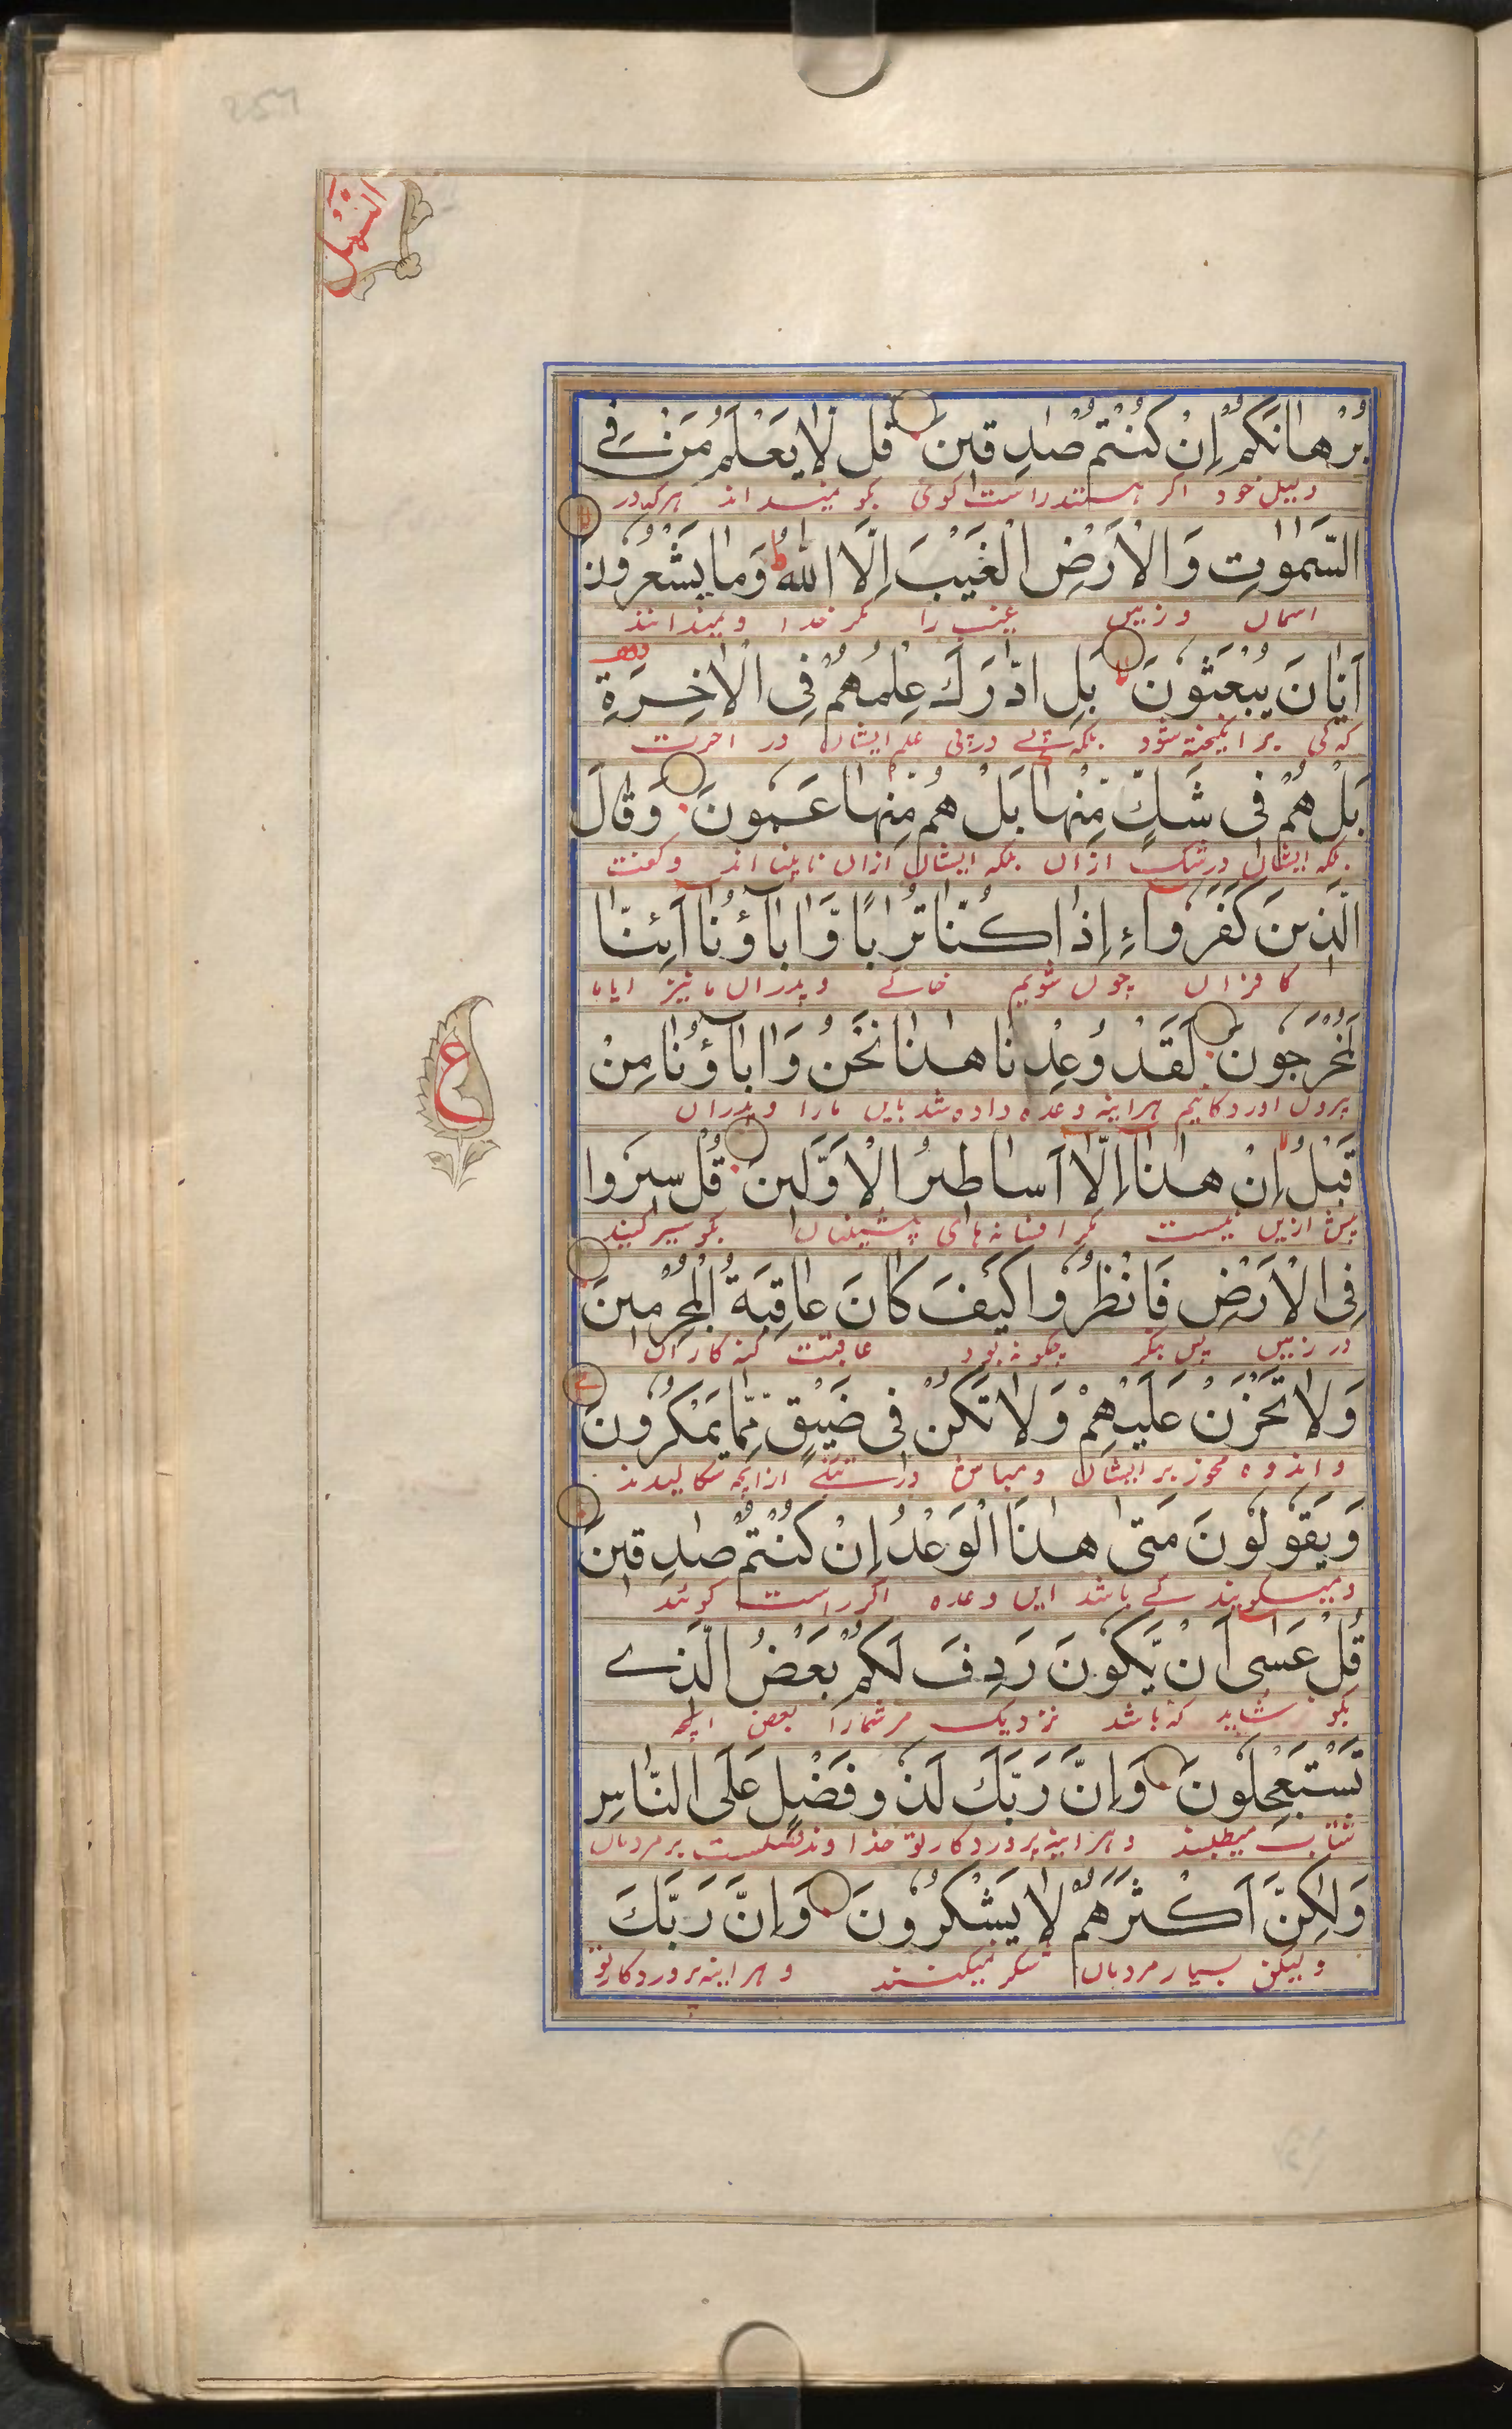 النمل
بُرْهَانَكُمْ اِنْ كُنْتُمْ صٰدِقِيْنَ قُلْ لَا يَعْلَمُ مَنْ فِے
دلیل خود اکر هستند راست کوی بکو نمیداند هرکه در
السَّمٰوٰتِ وَالْاَرْضِ الْغَيْبَ اِلَّا اللّٰهُ ط وَمَا يَشْعُرُوْنَ
اسمان وزمین غیب را مکر خدا و نمیدانند
اَيَّانَ يُبْعَثُوْنَ بَلِ ادّٰرَكَ عِلْمُهُمْ فِى الْاٰخِرَةِ
که کی بر انکیخته شود بلکه در پی علم ایشان در اخرت
بَلْ هُمْ فِى شَكٍّ مِّنْهَا بَلْ هُمْ مِّنْهَا عَمُوْنَ وَقَالَ
بلکه ایشان در شک ازان بلکه ایشان ازان نابینا اند وکفت
الَّذِيْنَ كَفَرُوْا ءَاِذَا كُنَّا تُرَابًا وَّاٰبَآؤُنَا اَئِنَّا
کافران چون شویم خاکے وپدران ما نیز ایا ما
لَمُخْرَجُوْنَ لَقَدْ وُعِدْنَا هٰذَا نَحْنُ وَاٰبَآؤُنَا مِنْ
بیرون اوردکانیم هراینه وعده داده شد باین مارا وپدران
قَبْلُ اِنْ هٰذَا اِلَّا اَسَاطِيْرُ الْاَوَّلِيْنَ قُلْ سِيْرُوْا
پیش ازین نیست مکر افسانهای پیشینان بکو سیر کنید
فِى الْاَرْضِ فَانْظُرُوْا كَيْفَ كَانَ عَاقِبَةُ الْمُجْرِمِيْنَ
در زمین پس بنکر چکونه بود عاقبت کنه کاران
ع
وَلَا تَحْزَنْ عَلَيْهِمْ وَلَا تَكُنْ فِى ضَيْقٍ مِّمَّا يَمْكُرُوْنَ
واندوه مخور بر ایشان ومباش در تنکے ازانچه سکالیدند
وَيَقُوْلُوْنَ مَتٰى هٰذَا الْوَعْدُ اِنْ كُنْتُمْ صٰدِقِيْنَ
ومیکویند کے باشد این وعده اکر راست کوئند
قُلْ عَسٰى اَنْ يَّكُوْنَ رَدِفَ لَكُمْ بَعْضُ الَّذِے
بکو شاید که باشد نزدیک مر شمارا بعض انچه
تَسْتَعْجِلُوْنَ وَاِنَّ رَبَّكَ لَذُوْ فَضْلٍ عَلَى النَّاسِ
شتاب میطلبند وهراینه پروردکار تو خداوند فضلست بر مردمان
وَلٰكِنَّ اَكْثَرَهُمْ لَا يَشْكُرُوْنَ وَاِنَّ رَبَّكَ
ولیکن بسیار مردمان شکر نمیکنند وهراینه پروردکار تو